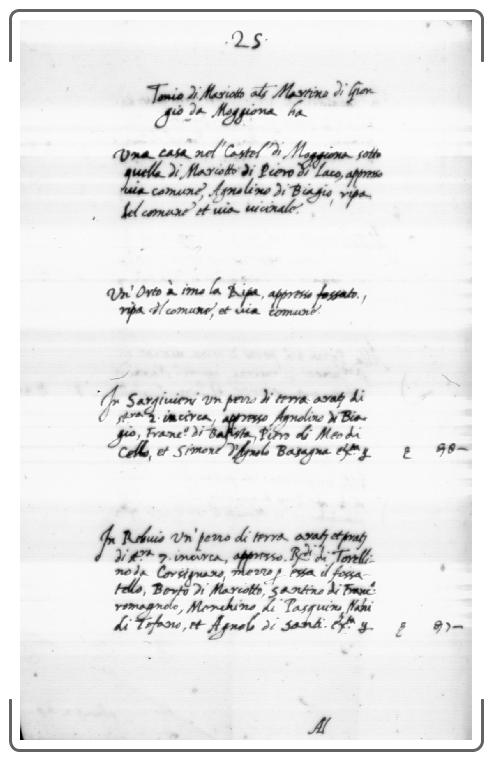 .25.
Tonio di Mariotto als Martino di Gior
gio da Moggiona ha
Una casa nel Castel di Moggiona sotto
quella di Mariotto di Piero di Laco, appresso
via comune, Agnolino di Biagio, ripa
del comune et via vicinale.
Un' Orto à imo la Ripa, appresso fossato.,
ripa del comune, et via comune.
In Sargivieni un pezzo di terra
2. incirca, appresso Agnolino di Bia-
gio, Franco di Batista, Piero di Meo di
Cello, et Simone d'Agnolo Basagna
In Rebuio un' pezzo di terra
di 7. incirca, appresso. di Torelli-
no da Corsignano, mezzo essa il fossa-
tello, Berto di Mariotto, Santino di
romagnolo, Menchino, di Pasquino Nani
di Tofano, et Agnolo di Santi.
Al